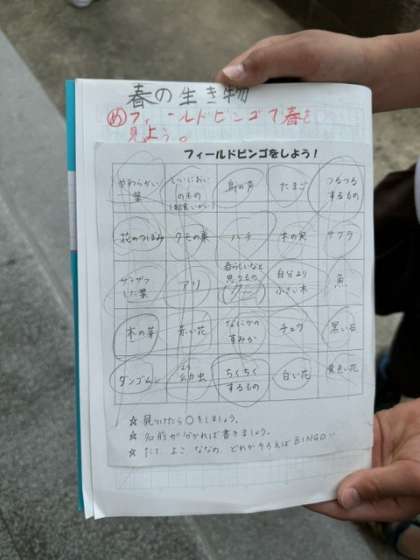 春の生き物
め フィールドビンゴで春を
見よう。
フィールドビンゴをしよう！
やわらかい
葉
いいにおい
のもの
鳥の声
たまご
つるつる
するもの
花のつぼみ
クモの巣
ハチ
木の実
サクラ
ザラザラ
した葉
アリ
春らしいなと
思うもの
自分より
小さい木
魚
木の芽
赤い花
なにかの
すみか
チョウ
黒い石
ダンゴムシ
幼虫
ちくちく
するもの
白い花
黄色い花
☆ 見つけたら○をしましょう。
☆ 名前が分かれば書きましょう。
☆ たて よこ ななめ どれかそろえば BINGO!!